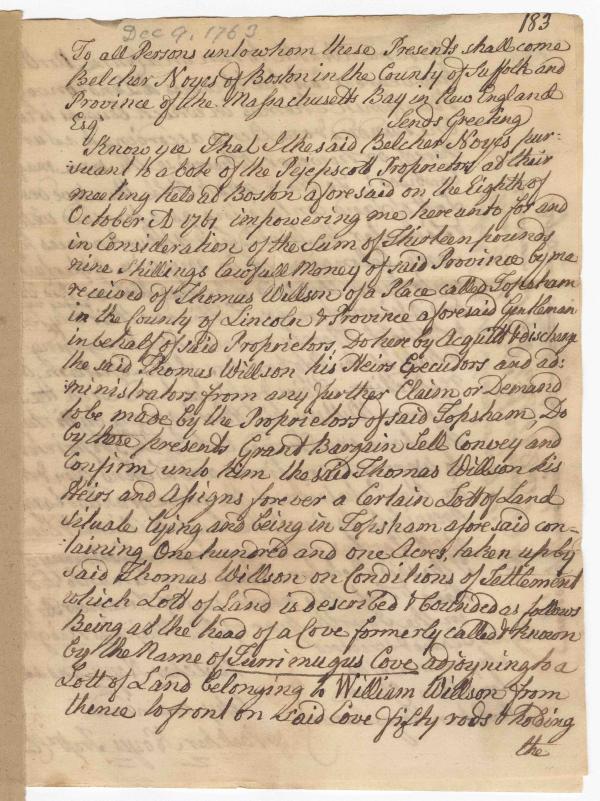 183
Dec 9, 1763
To all Persons unto whom these Presents shall come
Belcher Noyes of Boston in the County of Suffolk and
Province of the Massachusetts Bay in New England
Esqr Sends Greeting
Know yee That I the said Belcher Noyes pur-
:suant to a Vote of the Pejepscott Proprietors at their
meeting held at Boston aforesaid on the Eighth of
October A 1761 impowering me hereunto for and
in Consideration of the Sum of Thirteen pounds
nine Shillings lawfull Money of said Province by me
received of Thomas Willson of a Place called Topsham
in the County of Lincoln & Province aforesaid Gentleman
in behalf of said Proprietors, Do hereby Acquitt & discharge
the said Thomas Willson his Heirs Executors and ad:
:ministrators from any further Claim or Demand
to be made by the Proprietors of said Topsham, Do
by these presents Grant Bargain Sell Convey and
Confirm unto him the said Thomas Willson his
Heirs and Assigns forever a Certain Lott of Land
situate lying and being in Topsham aforesaid con-
taining One hundred and one Acres, taken up by
said Thomas Willson on Conditions of Settlement
which Lott of Land is described & bounded as follows
Being at the head of a Cove formerly called & known
by the Name of Turrimugus Cove adjoyning to a
Lott of Land belonging to William Willson from
thence to front on said Cove fifty rods & holding
the